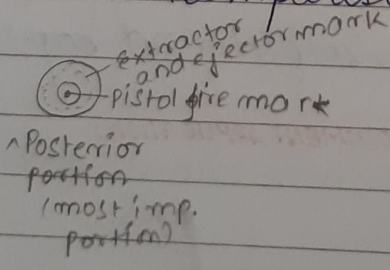 extractor
and ejector mark
pistol fire mark
^ Posterior
portion
(most imp.
portion)